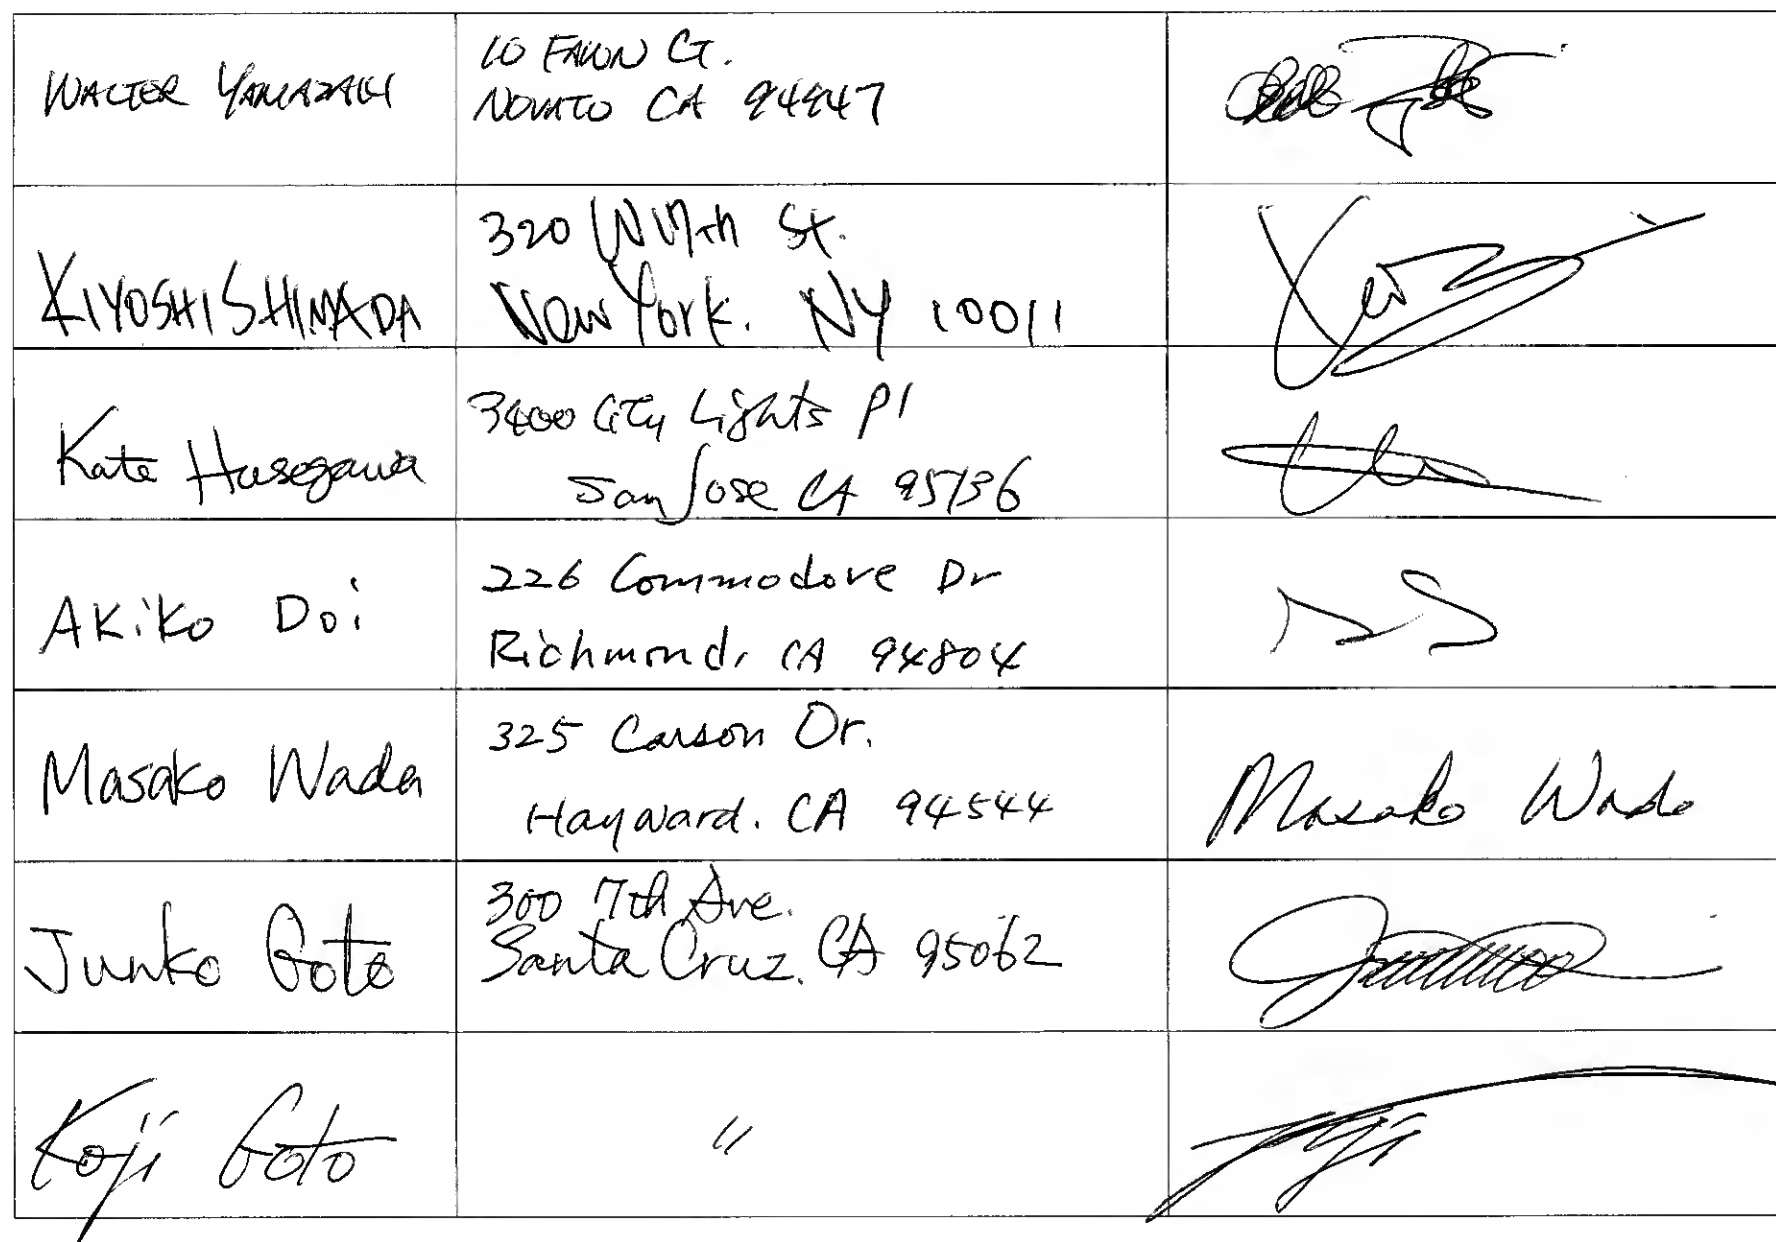 WALTER YAMAZAKI
10 FAWN CT.
NOVATO CA 94947
KIYOSHI SHIMADA
320 W 17th St.
New York. NY 10011
Kate Hasegawa
3400 City Lights Pl
San Jose CA 95136
AKiKo Doi
226 Commodore Dr
Richmond, CA 94804
Masako Wada
325 Carson Dr.
Hayward. CA 94544
Masako Wada
Junko Goto
300 7th Ave.
Santa Cruz. CA 95062
Koji Goto
"